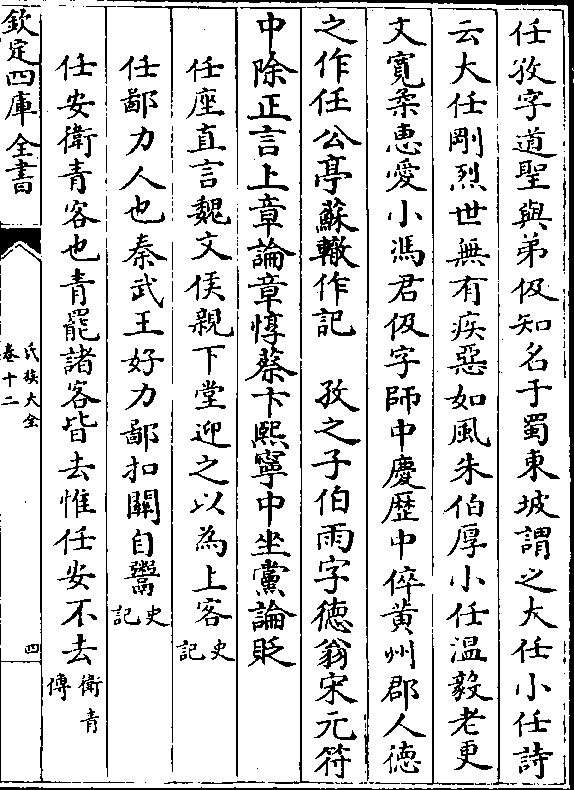 任孜字道聖與弟伋知名于蜀東坡謂之大任小任詩
云大任剛烈世無有疾惡如風朱伯厚小任溫毅老更
文寛柔惠愛小馮君伋字師中慶歷中倅黃州郡人徳
之作任公亭蘇轍作記　孜之子伯雨字德翁宋元符
中除正言上章論章惇蔡卞熙寧中坐黨論貶
任座直言魏文侯親下堂迎之以為上客史記
任鄙力人也秦武王好力鄙扣關自鬻史記
任安衛青客也青罷諸客皆去惟任安不去衛青傳
欽定四庫全書
氏族大全
卷十二
四